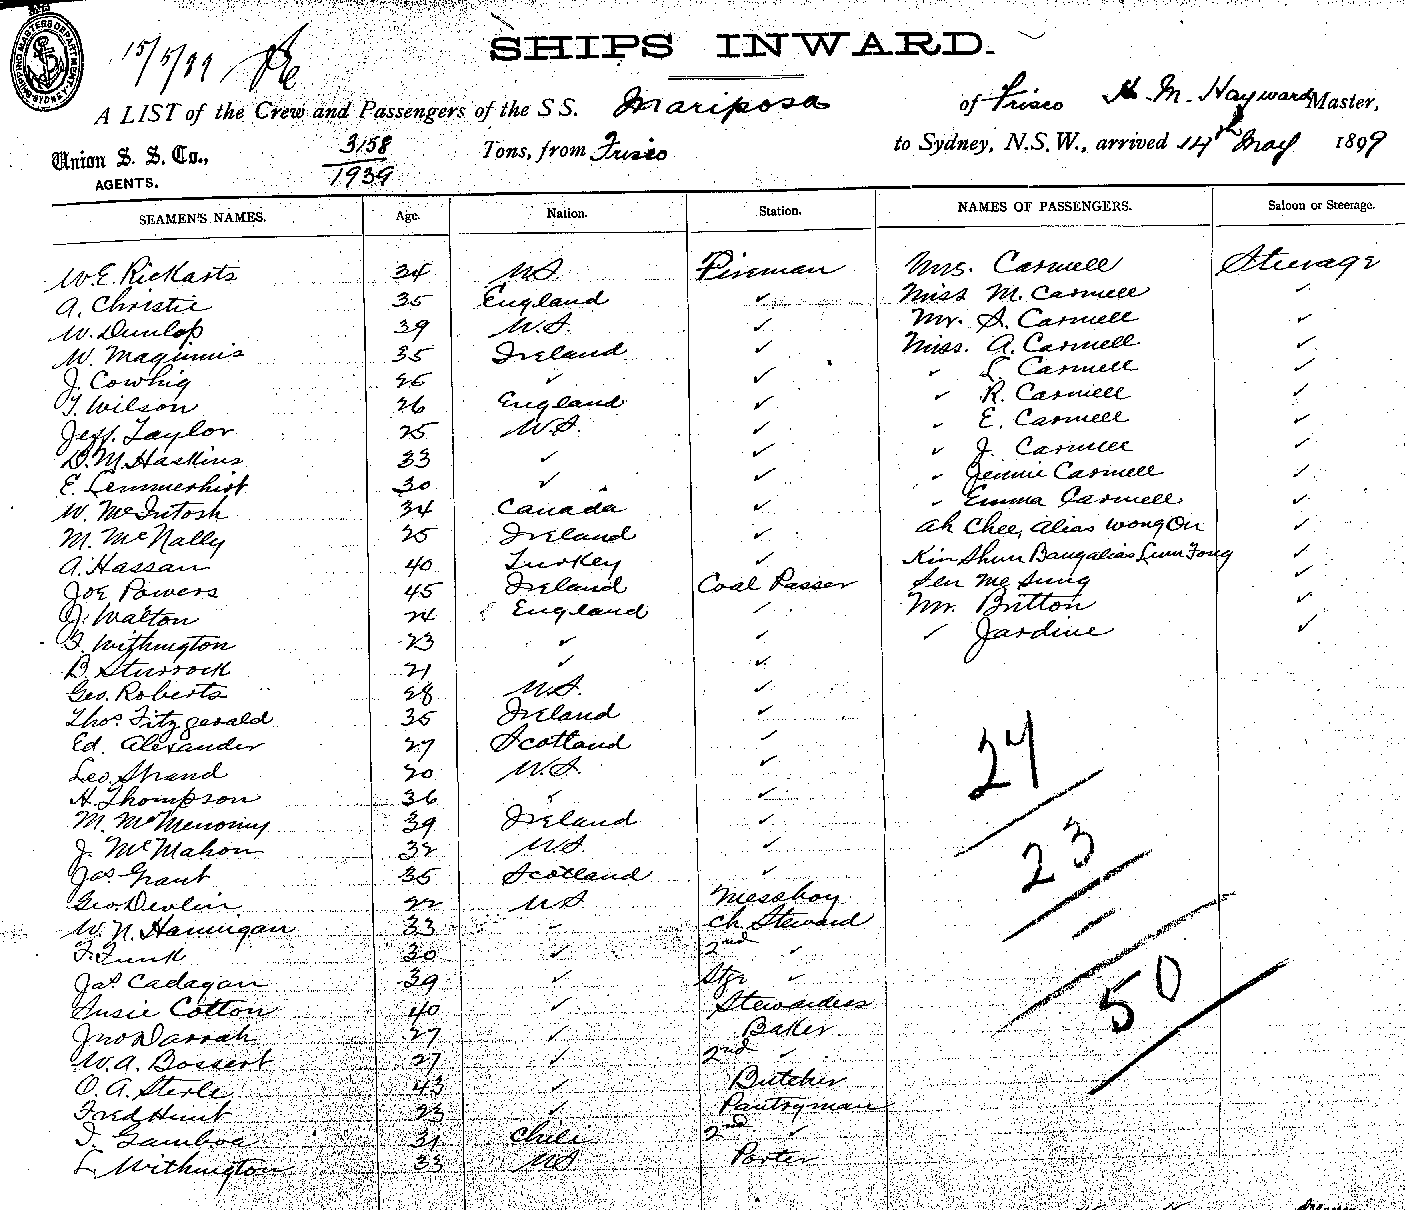 SHIPPING MASTERS DEPARTMENT SYDNEY
15/5/99
SHIPS INWARD.
A LIST of the Crew and Passengers of the S S. Mariposa of Frisco H. M. Hayward Master,
Union S. S. Co., AGENTS. 3158/1939 Tons, from Frisco to Sydney, N.S.W., arrived 14th May 1899
SEAMEN'S NAMES. Age. Nation. Station. NAMES OF PASSENGERS. Saloon or Steerage.
W.E. Rickarts 34 U.S. Fireman Mrs. Carmell Steerage
A. Christie 35 England ✓ Miss M. Carmell ✓
W. Dunlop 39 U.S. ✓ Mr. S. Carmell ✓
W. Maginnis 35 Ireland ✓ Miss. A. Carmell ✓
J. Cowhig 26 ✓ ✓ ✓ L. Carmell ✓
T. Wilson 26 England ✓ ✓ R. Carmell ✓
Jeff. Taylor 25 U.S. ✓ ✓ E. Carmell ✓
D. M. Haskins 33 ✓ ✓ ✓ J. Carmell ✓
E. Lemmerhirt 30 ✓ ✓ ✓ Jennie Carmell ✓
W. McIntosh 34 Canada ✓ ✓ Emma Carmell ✓
M. McNally 25 Ireland ✓ Ah Chee, alias Wong On ✓
A. Hassan 40 Turkey ✓ Kim Shun Bang alias Lum Fong ✓
Joe Powers 45 Ireland Coal Passer Sen Me Sung ✓
J. Walton 24 England ✓ Mr. Britton ✓
T. Withington 23 ✓ ✓ ✓ Jardine ✓
B. Sturrock 21 ✓ ✓
Geo. Roberts 28 U.S. ✓
Thos. Fitzgerald 35 Ireland ✓
Ed. Alexander 27 Scotland ✓
Leo. Strand 20 U.S. ✓
H. Thompson 36 ✓ ✓
M. McMenomy 39 Ireland ✓
J. McMahon 32 U.S. ✓
Jas. Grant 35 Scotland ✓
Geo Devlin 22 U.S. Messboy
W. N. Hannigan 33 ✓ Ch Steward
F. Funk 30 ✓ 2nd ✓
Jas. Cadagan 39 ✓ Stge ✓
Susie Cotton 40 ✓ Stewardess
Jno Darrah 27 ✓ Baker
W. A. Bossert 27 ✓ 2nd ✓
O. A. Sterle 43 ✓ Butcher
Fred Hunt 23 ✓ Pantryman
T. Gamboa 31 Chili 2nd ✓
L. Withington 33 U.S. Porter
24
23
50